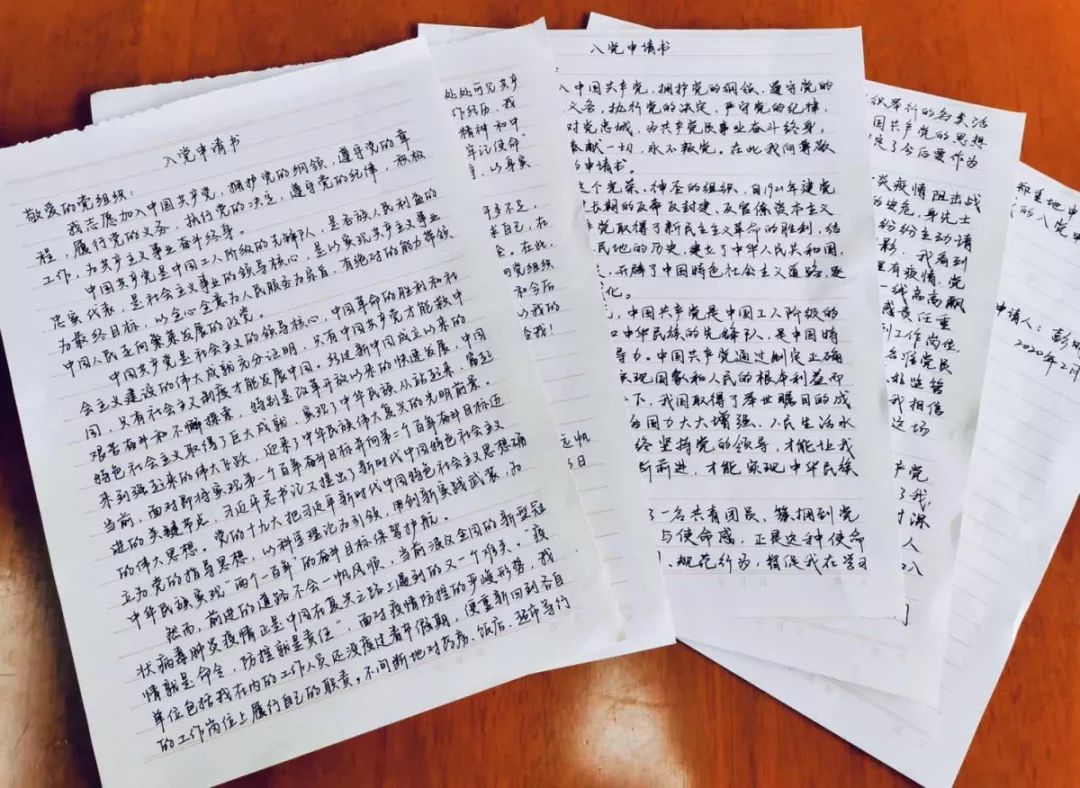 入党申请书
敬爱的党组织：
我志愿加入中国共产党，拥护党的纲领，遵守党的章
程，履行党的义务，执行党的决定，遵守党的纪律，积极
工作，为共产主义事业奋斗终身。
中国共产党是中国工人阶级的先锋队，是各族人民利益的
忠实代表，是社会主义事业的领导核心，是以实现共产主义事业
为最终目标，以全心全意为人民服务为宗旨，有绝对的能力带领
中国人民走向繁荣发展的政党。
中国共产党是社会主义的领导核心，中国革命的胜利和社
会主义建设的伟大成就充分证明，只有中国共产党才能救中
国，只有社会主义制度才能发展中国。经过新中国成立以来的
艰苦奋斗和不懈探索，特别是改革开放以来的快速发展，中国
特色社会主义取得了巨大成就，实现了中华民族从站起来、富起
来到强起来的伟大飞跃，迎来了中华民族伟大复兴的光明前景。
当前，面对即将实现第一个百年奋斗目标并向第二个百年奋斗目标迈
进的关键节点，习近平总书记又提出了新时代中国特色社会主义
的伟大思想。党的十九大把习近平新时代中国特色社会主义思想确
立为党的指导思想，以科学理论为引领，用创新实践武装，为
中华民族实现“两个一百年”的奋斗目标保驾护航。
然而，前进的道路不会一帆风顺，当前波及全国的新型冠
状病毒肺炎疫情正是中国在复兴之路上遇到的又一个难关。“疫
情就是命令，防控就是责任”，面对疫情防控的严峻形势，我
单位包括我在内的工作人员还没度过春节假期，便重新回到各自
的工作岗位上履行自己的职责。不间断地对药房、饭店、超市等行
处处可见共产
作经历，我
精神和中
牢记使命
，以身实
多不足，
求自己，在
。在此，
党组织
和今后
以我的
验我！
帆
日
入党申请书
入中国共产党，拥护党的纲领，遵守党的
义务，执行党的决定，严守党的纪律，
对党忠诚，为共产主义事业奋斗终身，
奉献一切，永不叛党。在此我向尊敬
申请书。
个光荣、神圣的组织，自1921年建党
长期的反帝反封建、反官僚资本主义
产党取得了新民主主义革命的胜利，结
民地的历史，建立了中华人民共和国，
，开辟了中国特色社会主义道路，逐
化。
，中国共产党是中国工人阶级的
中华民族的先锋队，是中国特
导力。中国共产党通过制定正确
实现国家和人民的根本利益而
下，我国取得了举世瞩目的成
合国力大大增强、人民生活水
终坚持党的领导，才能让我
断前进，才能实现中华民族
了一名共青团员，簇拥到党
与使命感，正是这种使命
，规范行为，督促我在学习
织举行的各类活
国共产党的思想
定了今后要作为
炎疫情阻击战
的安危，身先士
纷纷主动请
影，我看到
里有疫情，党
一线高高飘
感责任重
到工作岗位，
名准党员
我相信
这场
产党
了我，
深
人
入
郑重地
的入党申
申请人：
2020年2月